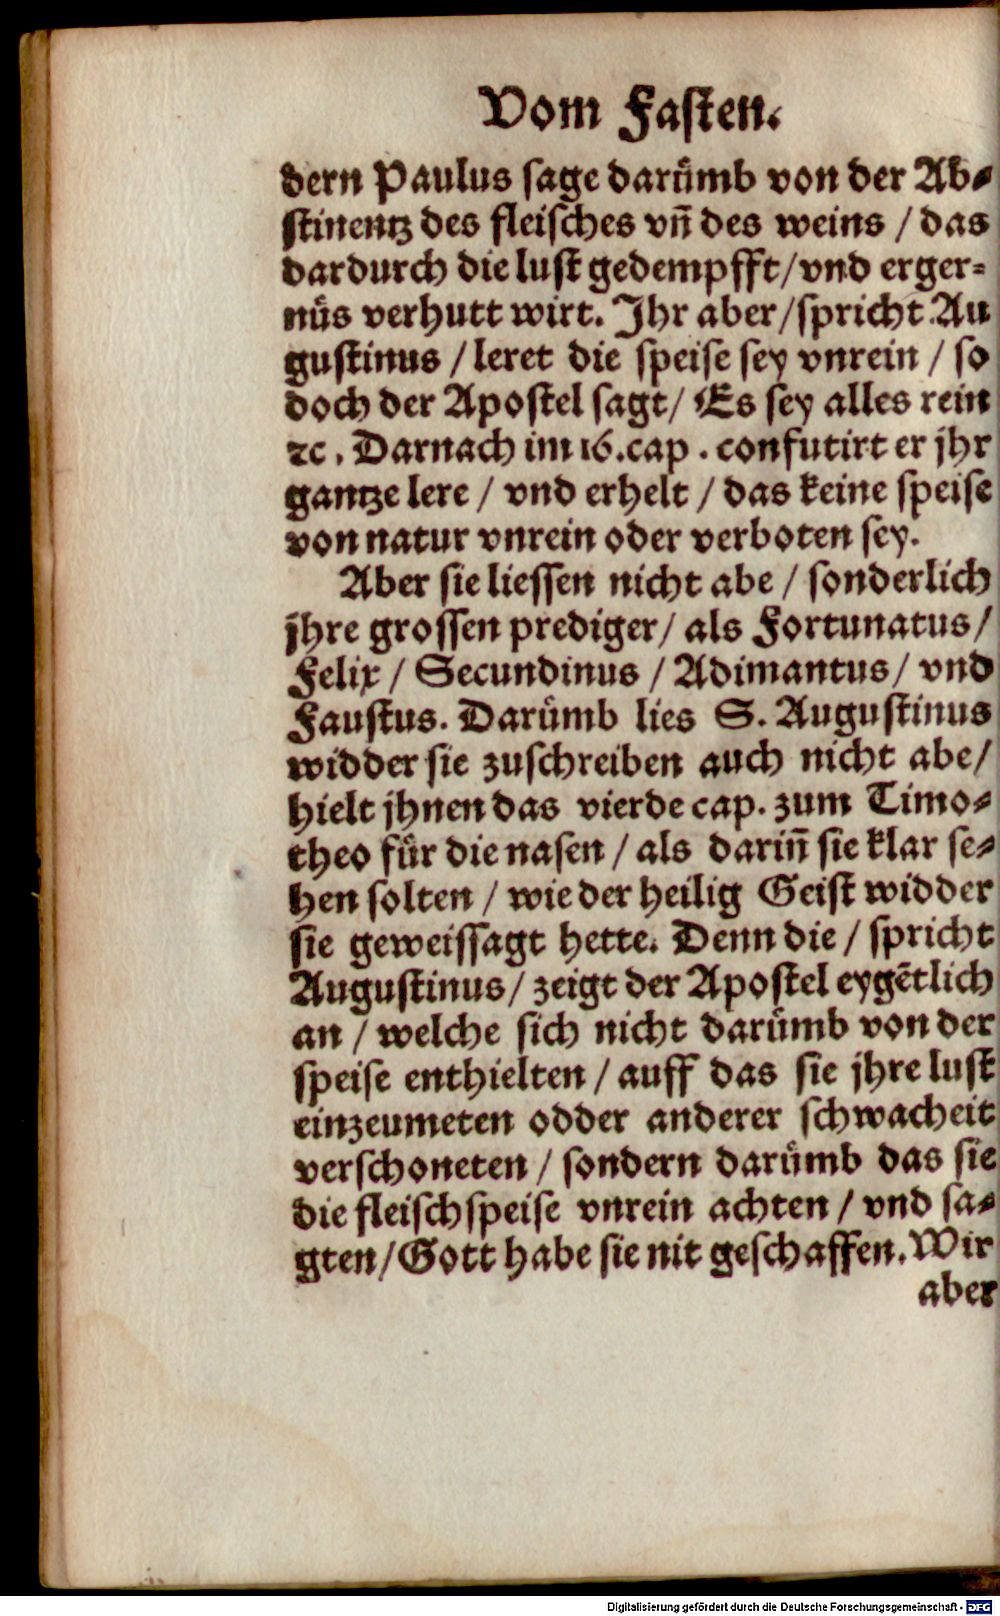 Vom Fasten.
dern Paulus sage darümb von der Ab-
stinentz des fleisches vñ des weins / das
dardurch die lust gedempfft/vnd erger-
nüs verhutt wirt. Ihr aber/spricht Au
gustinus /leret die speise sey vnrein / so
doch der Apostel sagt/ Es sey alles rein
ꝛc. Darnach im 16.cap. confutirt er jhr
gantze lere / vnd erhelt / das keine speise
von natur vnrein oder verboten sey.
Aber sie liessen nicht abe / sonderlich
jhre grossen prediger/ als Fortunatus/
Felix / Secundinus / Adimantus/ vnd
Faustus. Darümb lies S. Augustinus
widder sie zuschreiben auch nicht abe/
hielt jhnen das vierde cap. zum Timo-
theo für die nasen / als dariñ sie klar se-
hen solten / wie der heilig Geist widder
sie geweissagt hette. Denn die / spricht
Augustinus/ zeigt der Apostel eygẽtlich
an / welche sich nicht darümb von der
speise enthielten / auff das sie jhre lust
einzeumeten odder anderer schwacheit
verschoneten / sondern darümb das sie
die fleischspeise vnrein achten / vnd sa-
gten/Gott habe sie nit geschaffen. Wir
aber
Digitalisierung gefördert durch die Deutsche Forschungsgemeinschaft - DFG